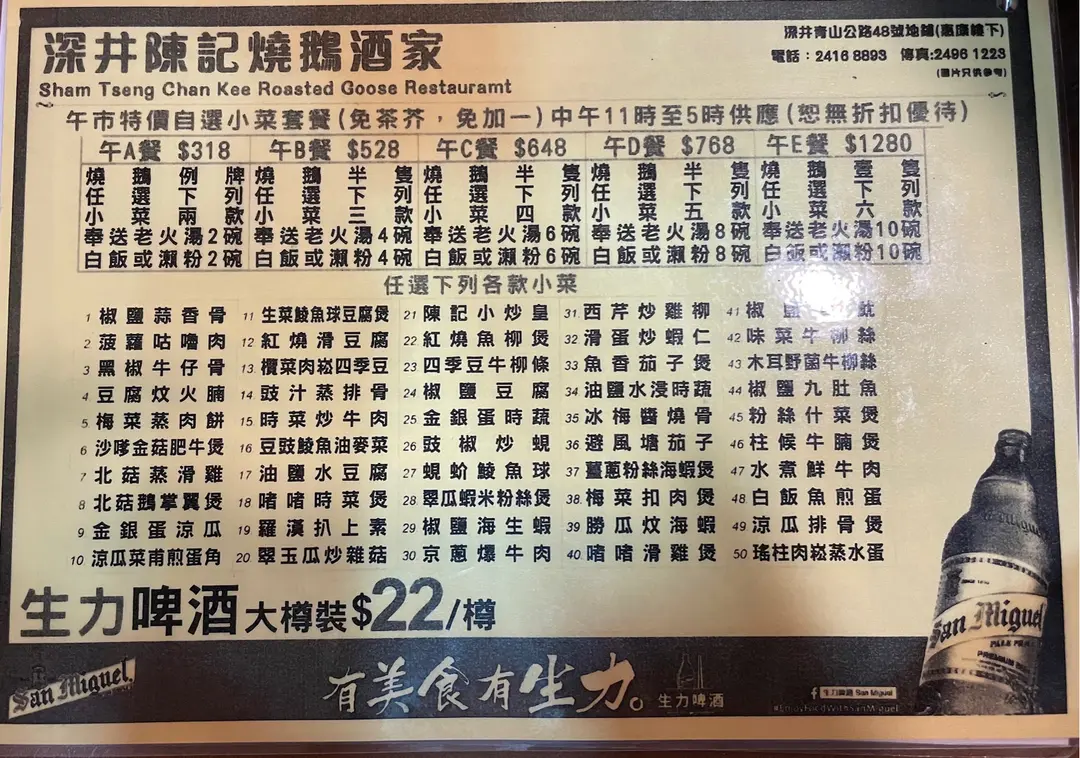 深井陳記燒鵝酒家
Sham Tseng Chan Kee Roasted Goose Restauramt
深井青山公路48號地舖(惠康樓下)
電話：2416 8893 傳真:2496 1223
(圖片只供參考)
午市特價自選小菜套餐(免茶芥，免加一)中午11時至5時供應(恕無折扣優待)
午A餐 $318 午B餐 $528 午C餐 $648 午D餐 $768 午E餐 $1280
燒鵝例牌 燒鵝半隻 燒鵝半隻 燒鵝半隻 燒鵝壹隻
任選下列 任選下列 任選下列 任選下列 任選下列
小菜兩款 小菜三款 小菜四款 小菜五款 小菜六款
奉送老火湯2碗 奉送老火湯4碗 奉送老火湯6碗 奉送老火湯8碗 奉送老火湯10碗
白飯或瀨粉2碗 白飯或瀨粉4碗 白飯或瀨粉6碗 白飯或瀨粉8碗 白飯或瀨粉10碗
任選下列各款小菜
1 椒鹽蒜香骨 11 生菜鯪魚球豆腐煲 21 陳記小炒皇 31 西芹炒雞柳 41 椒鹽
2 菠蘿咕嚕肉 12 紅燒滑豆腐 22 紅燒魚柳煲 32 滑蛋炒蝦仁 42 味菜牛柳絲
3 黑椒牛仔骨 13 欖菜肉崧四季豆 23 四季豆牛柳條 33 魚香茄子煲 43 木耳野菌牛柳絲
4 豆腐炆火腩 14 豉汁蒸排骨 24 椒鹽豆腐 34 油鹽水浸時蔬 44 椒鹽九肚魚
5 梅菜蒸肉餅 15 時菜炒牛肉 25 金銀蛋時蔬 35 冰梅醬燒骨 45 粉絲什菜煲
6 沙嗲金菇肥牛煲 16 豆豉鯪魚油麥菜 26 豉椒炒蜆 36 避風塘茄子 46 柱候牛腩煲
7 北菇蒸滑雞 17 油鹽水豆腐 27 蜆蚧鯪魚球 37 薑蔥粉絲海蝦煲 47 水煮鮮牛肉
8 北菇鵝掌翼煲 18 啫啫時菜煲 28 翠瓜蝦米粉絲煲 38 梅菜扣肉煲 48 白飯魚煎蛋
9 金銀蛋涼瓜 19 羅漢扒上素 29 椒鹽海生蝦 39 勝瓜炆海蝦 49 涼瓜排骨煲
10 涼瓜菜甫煎蛋角 20 翠玉瓜炒雜菇 30 京蔥爆牛肉 40 啫啫滑雞煲 50 瑤柱肉崧蒸水蛋
生力啤酒 大樽裝$22/樽
San Miguel
有美食有生力。
生力啤酒
f 生力啤酒 San Miguel
#EnjoyFoodWithSanMiguel
San Miguel
PALE PILSEN